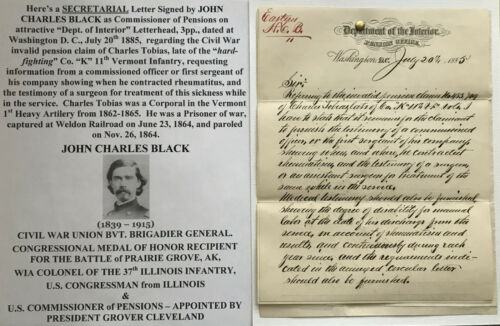 Here's a SECRETARIAL Letter Signed by JOHN
CHARLES BLACK as Commissioner of Pensions on
attractive "Dept. of Interior" Letterhead, 3pp., dated at
Washington D. C., July 20th 1885, regarding the Civil War
invalid pension claim of Charles Tobias, late of the "hard-
fighting" Co. "K" 11th Vermont Infantry, requesting
information from a commissioned officer or first sergeant of
his company showing when he contracted rheumatitus, and
the testimony of a surgeon for treatment of this sickness while
in the service. Charles Tobias was a Corporal in the Vermont
1st Heavy Artillery from 1862-1865. He was a Prisoner of war,
captured at Weldon Railroad on June 23, 1864, and paroled
on Nov. 26, 1864.
JOHN CHARLES BLACK
(1839 – 1915)
CIVIL WAR UNION BVT. BRIGADIER GENERAL.
CONGRESSIONAL MEDAL OF HONOR RECIPIENT
FOR THE BATTLE of PRAIRIE GROVE, AK,
WIA COLONEL OF THE 37th ILLINOIS INFANTRY,
U.S. CONGRESSMAN from ILLINOIS
&
U.S. COMMISSIONER of PENSIONS – APPOINTED BY
PRESIDENT GROVER CLEVELAND
Department of the Interior,
PENSION OFFICE,
Washington, D.C. July 20th 1885
Sir:
Referring to the invalid pension claim
of Charles Tobias late of Co. "K" 11th Vt. Vols. I
have to state that it remains for the claimant
to possess the testimony of a commissioned
officer, or the first sergeant of his company,
showing when, and where, he contracted
rheumatism, and the testimony of a surgeon,
or an assistant surgeon for treatment of the
same while in the service.
Medical testimony should also be furnished
showing the degree of disability for manual
labor at the date of his discharge from the
service, on account of rheumatism and
results and continuously during each
year since, and the requirements indi-
cated in the annexed circular letter
should also be furnished.